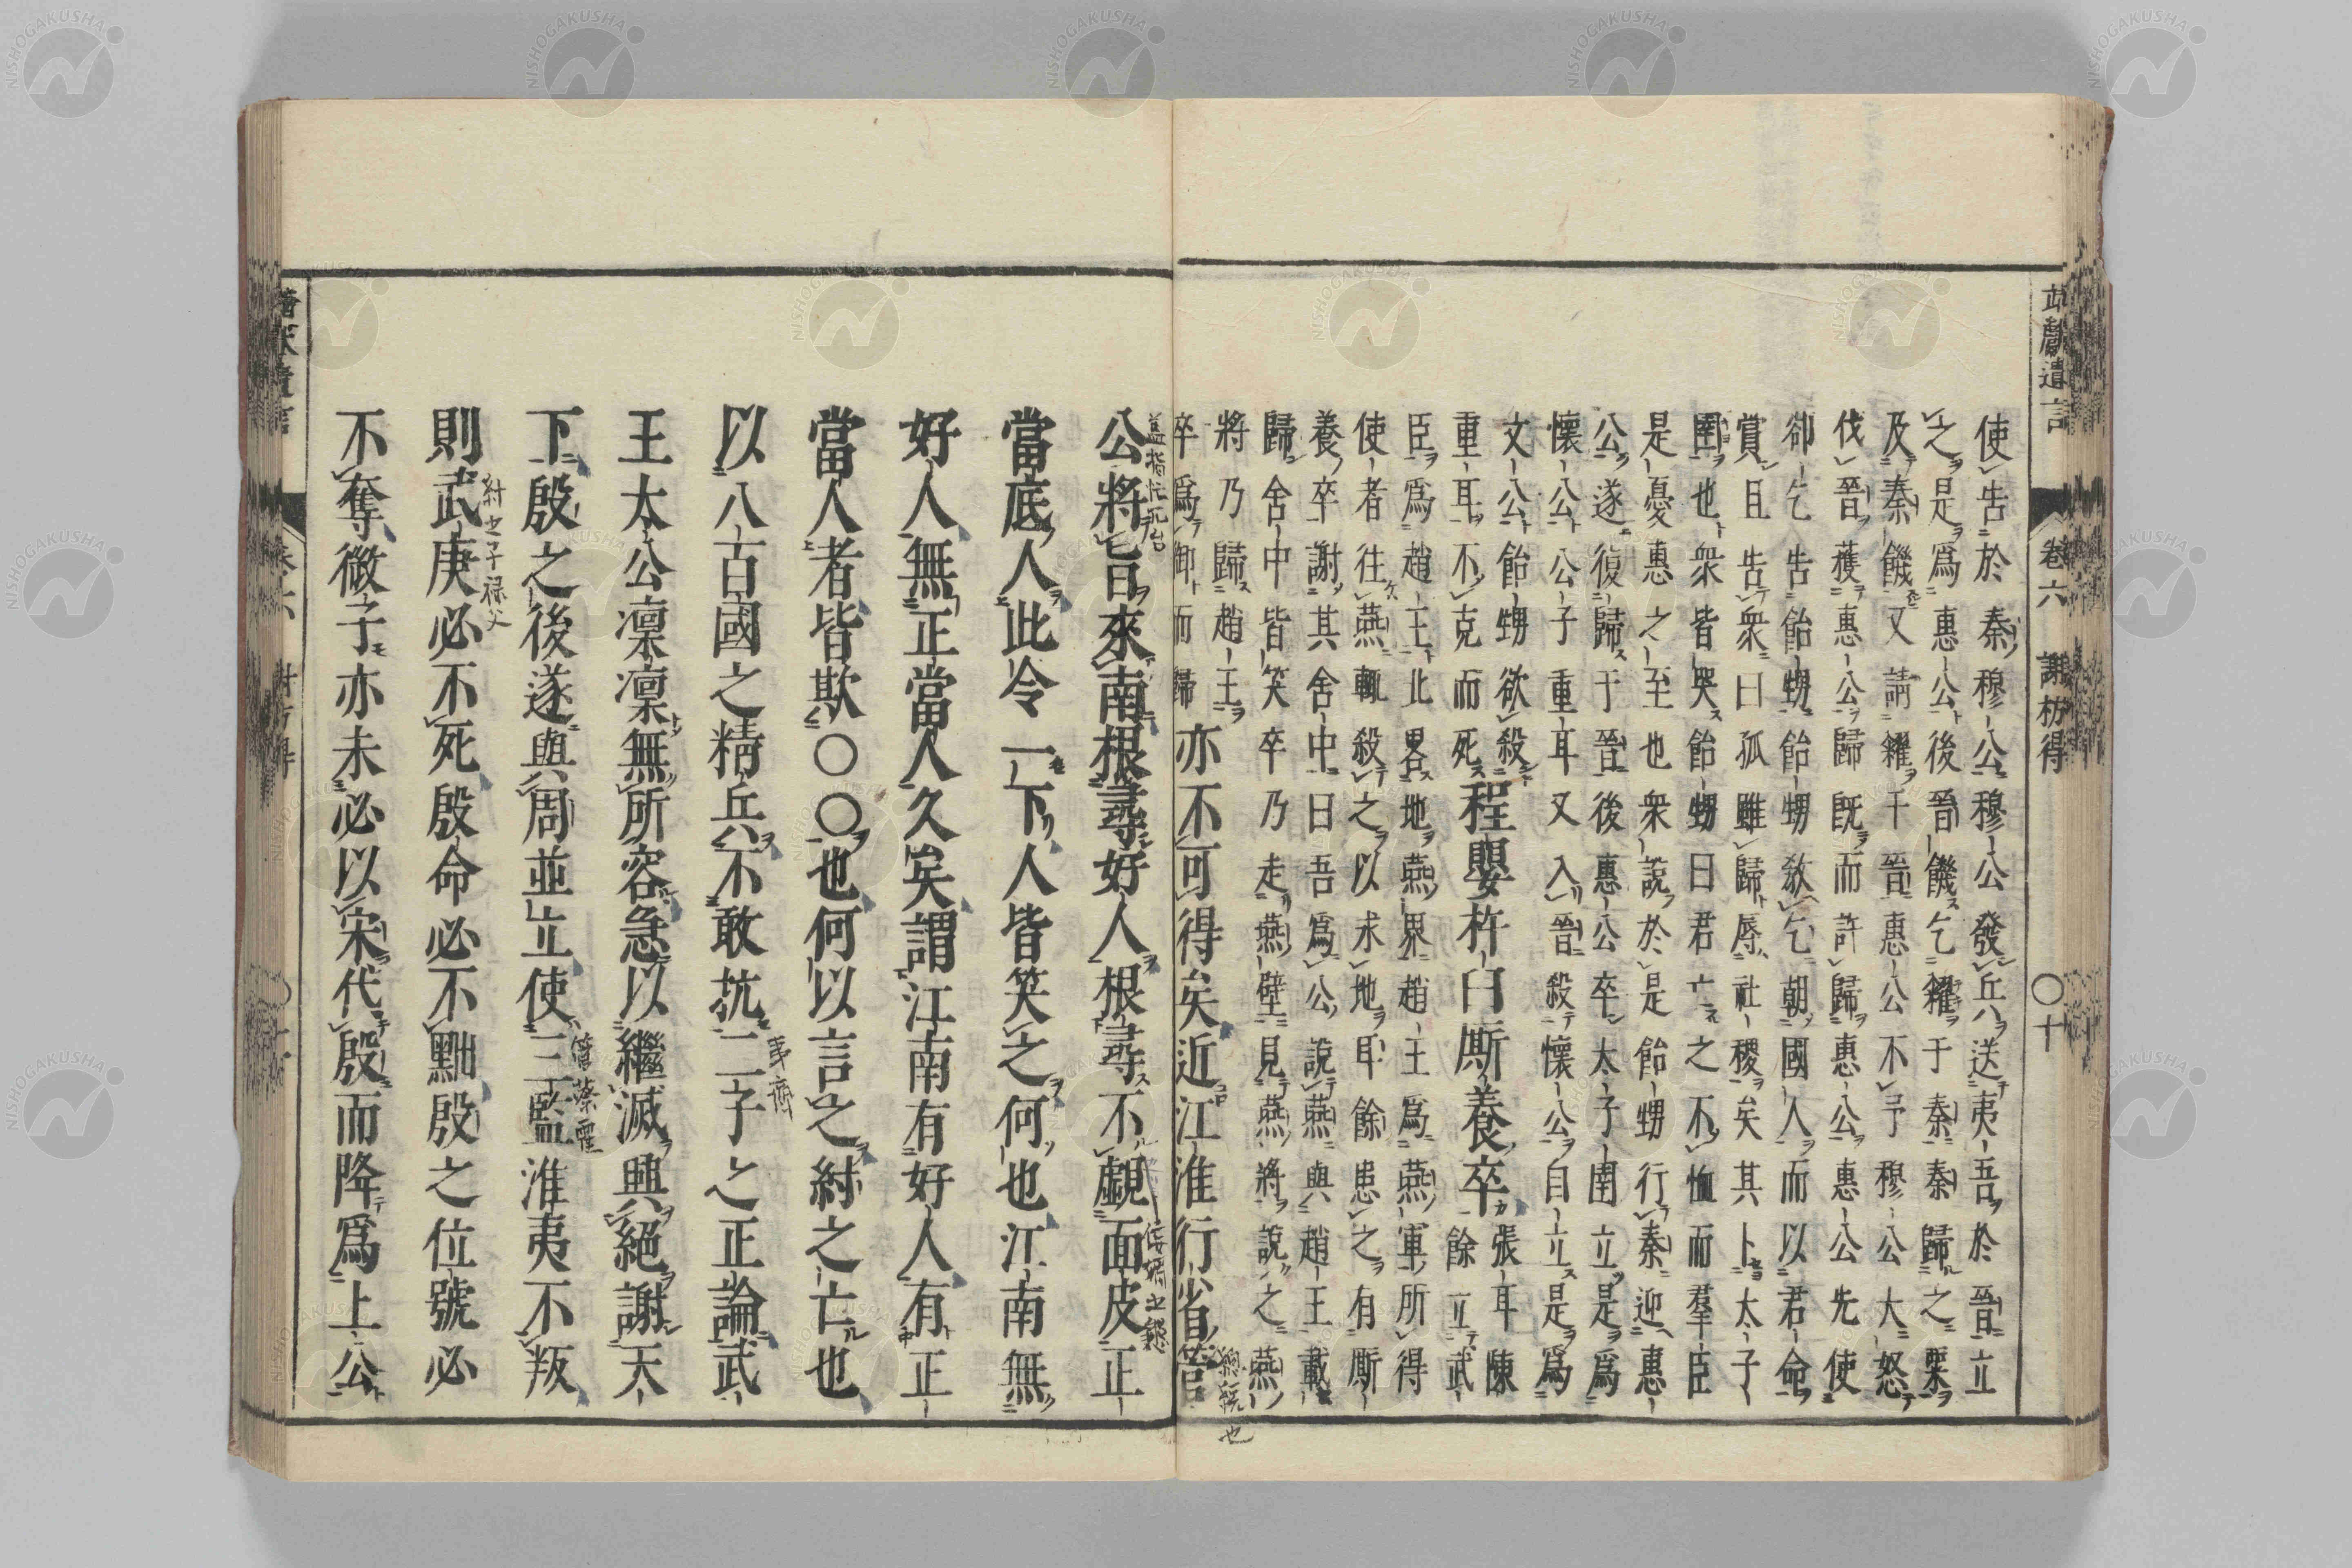 靖獻遺言 卷六 謝枋得 〇十
使告於秦穆公穆公發兵送夷吾於晉立
之是爲惠公後晉饑乞糴于秦秦歸之粟
及秦饑又請糴于晉惠公不予穆公大怒
伐晉獲惠公歸既而許歸惠公惠公先使
郤乞告飴甥飴甥敎乞朝國人而以君命
賞且告衆曰孤雖歸辱社稷矣其卜太子
圉也衆皆哭飴甥曰君亡之不恤而羣臣
是憂惠之至也衆說於是飴甥行秦迎惠
公遂復歸于晉後惠公卒太子圉立是爲
懷公公子重耳又入晉殺懷公自立是爲
文公飴甥欲殺
重耳不克而死
程嬰杵臼厮養卒
張耳陳
餘立武
臣爲趙王北畧地燕界趙王爲燕軍所得
使者往燕輒殺之以求地耳餘患之有厮
養卒謝其舍中曰吾爲公說燕與趙王載
歸舍中皆笑卒乃走燕壁見燕將說之燕
將乃歸趙王
卒爲御而歸
亦不可得矣近江淮行省管
公將旨來南根尋好人根尋不覷面皮正
當底人此令一下人皆笑之何也江南無
好人無正當人久矣謂江南有好人有正
當人者皆欺〇〇也何以言之紂之亡也
以八百國之精兵不敢抗二子之正論武
夷齊
王太公凜凜無所容急以繼滅興絕謝天
下殷之後遂與周並立使三監淮夷不叛
管蔡霍
則武庚必不死殷命必不黜殷之位號必
紂之子祿父
不奪微子亦未必以宋代殷而降爲上公